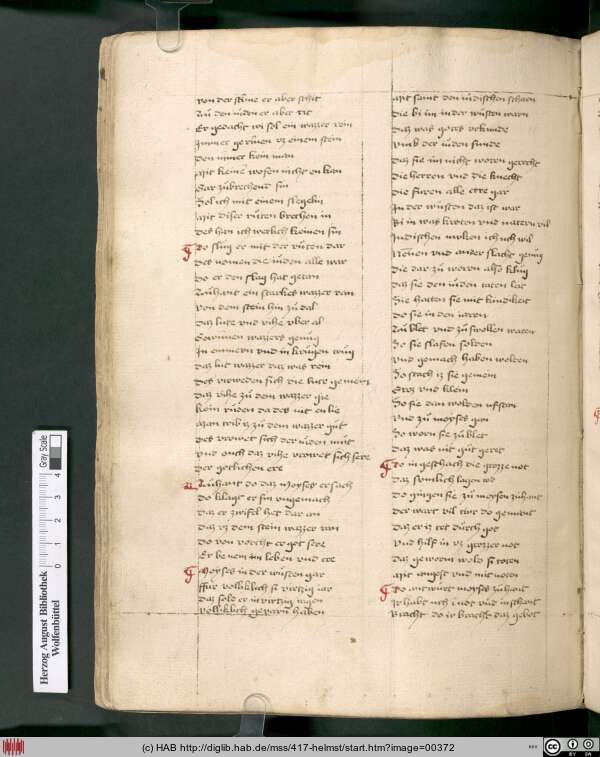 von der stime er aber schit
Zu den iuden er aber rit
Er gedacht wi sol ein wazzer rein
Immer gerinen vz einem stein
Den nimer kein man
Mit keine wofen nicht enkan
Gar zubrechend sin
Sol ich mit einem slegelin
Mit diser ruten brechen in
Des han ich werlich kleinen sin
Do slug er mit der ruten dar
des nomen die iuden alle war
do er den slag hat getan
Zuhant ein starkes wazzer ran
von dem stein hin zu dal
daz lute vnd vihe vber al
Gewunen wazzers genug
In emmern vnd in krugen trug
daz lut wazzer daz was rein
des vreweden sich die lute gemein
daz vihe zu dem wazzer gie
kein ruden da des nit enlie
Man treib iz zu dem wazzer gut
des vrowet sich der iuden mut
vnd auch daz vihe vrowet sich sere
der gotlichen ere
Zuhant do daz Moyses ersach
do klagt er sin vngemach
daz er zwifel het dar an
daz vz dem stein wazzer ran
do von vorcht er got sere
Er benem im leben vnd ere
Moyses in der wusten gar
ffur volliklich virtzig iar
daz solde er in virtzig tagen
volliklich gevarn haben
Mit samt den iudischen scharn
die bi im in der wusten warn
daz was gotes vrkunde
vmb der iuden sunde
daz sie im nicht woren gerecht
die herren vnd die knecht
die furen alle erre gar
In der wusten daz ist war
Bi in was kroten vnd natern vil
Iudischen molken ich uch wil
Neuen vnd ander slacht genug
die dar zu woren also klug
daz sie den iuden taten leit
Sie hatten sie mit kundikeit
do sie in den iaren
Zu blet vnd zu swollen waren
So sie slafen solden
vnd gemach haben wolden
So stach iz sie gemein
Groz vnd klein
So sie dan wolden ufstan
vnd zu moyses gan
So worn sie zu blet
daz was nit gut geret
Do in geschach die grozze not
daz sumlich lagen tot
do gingen sie zu moysen zuhant
der wart vil tur do gemant
daz er iz tet durch got
vnd hilf in vz grozzer not
daz gewurm wold si toten
Mit angest vnd mit noten
Do antwurt moyses zuhant
Ir habt uch i not vnd in schant
Bracht do ir bracht daz gebot
Herzog August Bibliothek
Wolfenbüttel
0 1 2 3 4
Gray Scale
(c) HAB http://diglib.hab.de/mss/417-helmst/start.htm?image=00372
cc BY SA